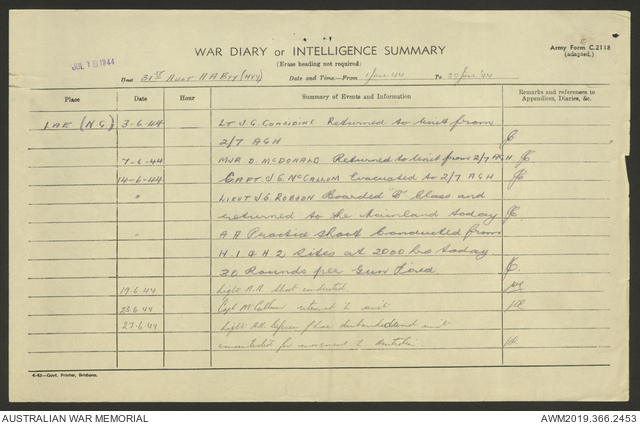 JUL 18 1944
WAR DIARY or INTELLIGENCE SUMMARY
(Erase heading not required)
Army Form C.2118
(adapted.)
Unit 31ST Aust A A Bty (HVY) Date and Time—From 1 June 44 To 30 June '44
Place Date Hour Summary of Events and Information Remarks and references to Appendices, Diaries, &c.
LAE (N.G.) 3-6-44 LT J.G. CONSIDINE Returned to Unit from
2/7 AGH
7-6-44 MJR D. McDONALD Returned to Unit from 2/7 AGH
14-6-44 CAPT J.G. McCALLUM Evacuated to 2/7 AGH
" LIEUT J.S. ROBSON Boarded "B" Class and
returned to the Mainland today
" A A Practice Shoot Conducted from
H.1 & H.2 Sites at 2000 hrs today.
30 Rounds per Gun Fired.
19-6-44 Light A.A. Shoot conducted
23-6-44 Capt McCallum returned to unit
27-6-44 Light AA defence disbanded and unit
concentrated for movement to Australia
4-43—Govt. Printer, Brisbane.
AUSTRALIAN WAR MEMORIAL AWM2019.366.2453